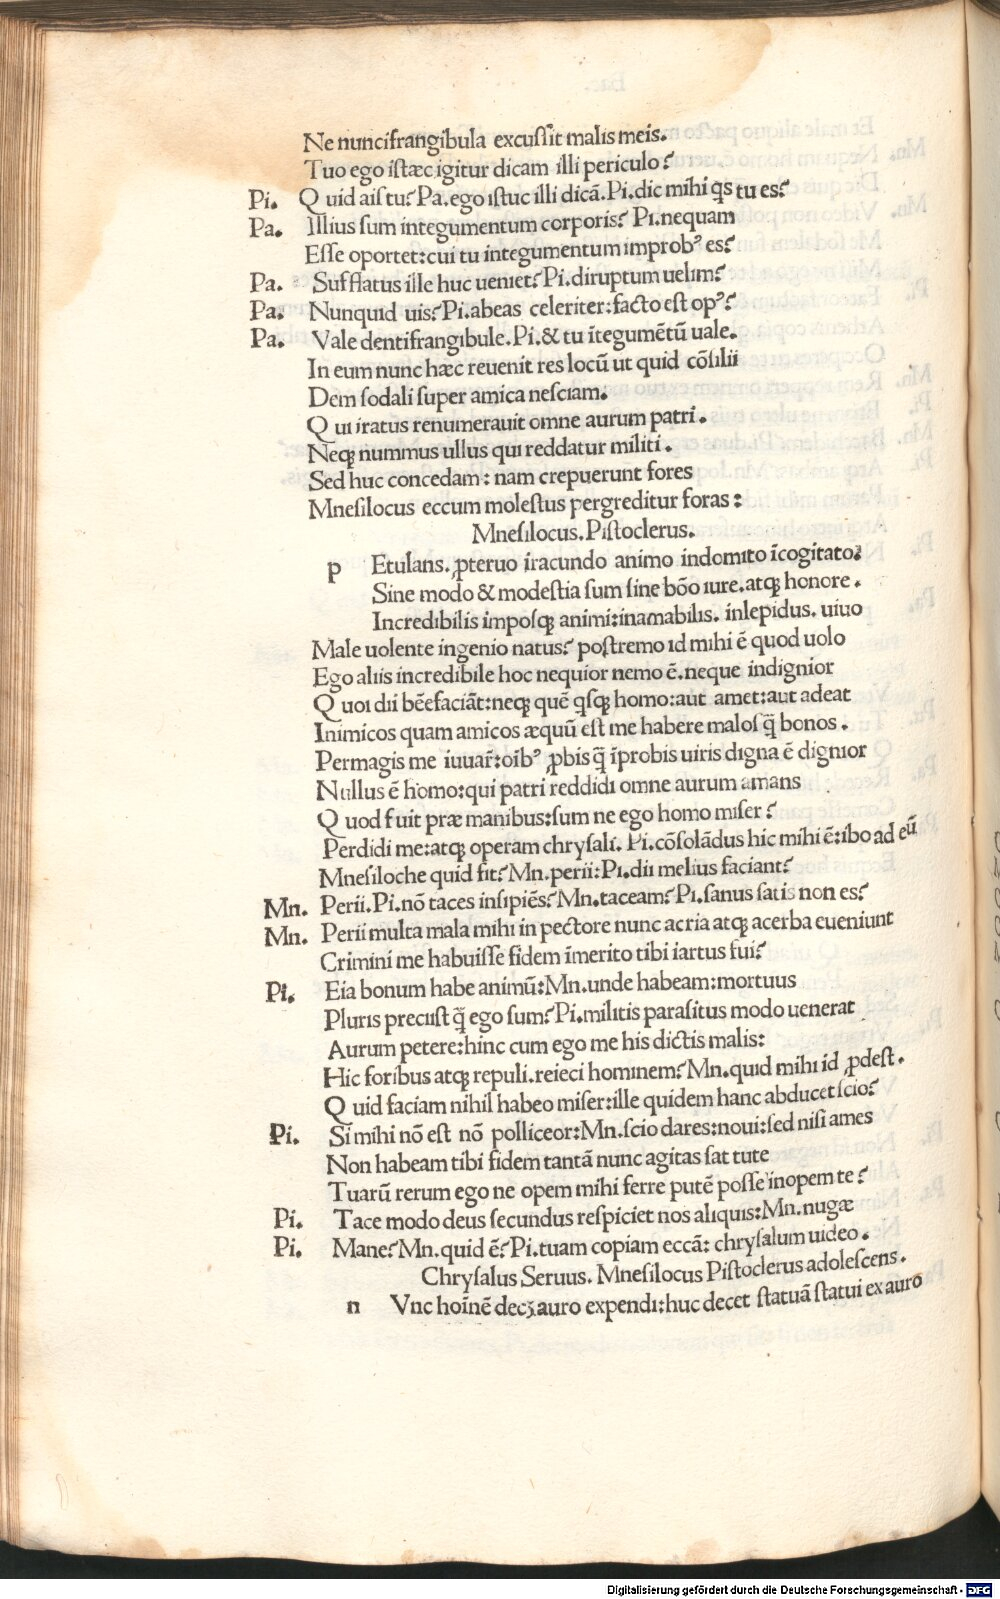 Ne nuncifrangibula excuſſit malis meis.
Tuo ego iſtæc igitur dicam illi periculo?
Pi. Q uid aiſ tu? Pa. ego iſtuc illi dicã. Pi. dic mihi qͥs tu es?
Pa. Illius ſum integumentum corporis? Pi. nequam
Eſſe oportet: cui tu integumentum improbꝰ es?
Pa. Sufflatus ille huc ueniet? Pi. diruptum uelim?
Pa. Nunquid uis? Pi. abeas celeriter: facto eſt opꝰ?
Pa. Vale dentifrangibule. Pi. & tu ĩtegumẽtũ uale.
In eum nunc hæc reuenit res locũ ut quid cõſilii
Dem ſodali ſuper amica neſciam.
Q ui iratus renumerauit omne aurum patri.
Neqꝫ nummus ullus qui reddatur militi.
Sed huc concedam: nam crepuerunt fores
Mneſilocus eccum moleſtus pergreditur foras:
Mneſilocus. Piſtoclerus.
p Etulans. ꝓteruo iracundo animo indomito ĩcogitato?
Sine modo & modeſtia ſum ſine bõo iure. atqꝫ honore.
Incredibilis impoſqꝫ animi: inamabilis. inlepidus. uiuo
Male uolente ingenio natus? poſtremo id mihi ẽ quod uolo
Ego aliis incredibile hoc nequior nemo ẽ. neque indignior
Q uoi dii bẽefaciãt: neqꝫ quẽ qͥſqꝫ homo: aut amet: aut adeat
Inimicos quam amicos æquũ eſt me habere maloſ q̃ bonos.
Permagis me iuuar̃: oibꝰ ꝓbis q̃ ĩprobis uiris digna ẽ dignior
Nullus ẽ homo: qui patri reddidi omne aurum amans
Q uod fuit præ manibus: ſum ne ego homo miſer?
Perdidi me: atqꝫ operam chryſali. Pi. cõſolãdus hic mihi ẽ: ibo ad eũ
Mneſiloche quid fit? Mn. perii: Pi. dii melius faciant?
Mn. Perii. Pi. nõ taces inſipiẽs? Mn. taceam? Pi. ſanus ſatis non es?
Mn. Perii multa mala mihi in pectore nunc acria atqꝫ acerba eueniunt
Crimini me habuiſſe fidem ĩmerito tibi iartus fui?
Pi. Eia bonum habe animũ: Mn. unde habeam: mortuus
Pluris preciiſt q̃ ego ſum? Pi. militis paraſitus modo uenerat
Aurum petere: hinc cum ego me his dictis malis:
Hic foribus atqꝫ repuli. reieci hominem? Mn. quid mihi id ꝓdeſt.
Q uid faciam nihil habeo miſer: ille quidem hanc abducet ſcio?
Pi. Si mihi nõ eſt nõ polliceor: Mn. ſcio dares: noui: ſed niſi ames
Non habeam tibi fidem tantã nunc agitas ſat tute
Tuarũ rerum ego ne opem mihi ferre putẽ poſſe inopem te?
Pi. Tace modo deus ſecundus reſpiciet nos aliquis: Mn. nugæ
Pi. Mane? Mn. quid ẽ? Pi. tuam copiam eccã: chryſalum uideo.
Chryſalus Seruus. Mneſilocus Piſtoclerus adoleſcens.
n Vnc hoĩnẽ decꝫ auro expendi: huc decet ſtatuã ſtatui ex auro
Digitalisierung gefördert durch die Deutsche Forschungsgemeinschaft - DFG